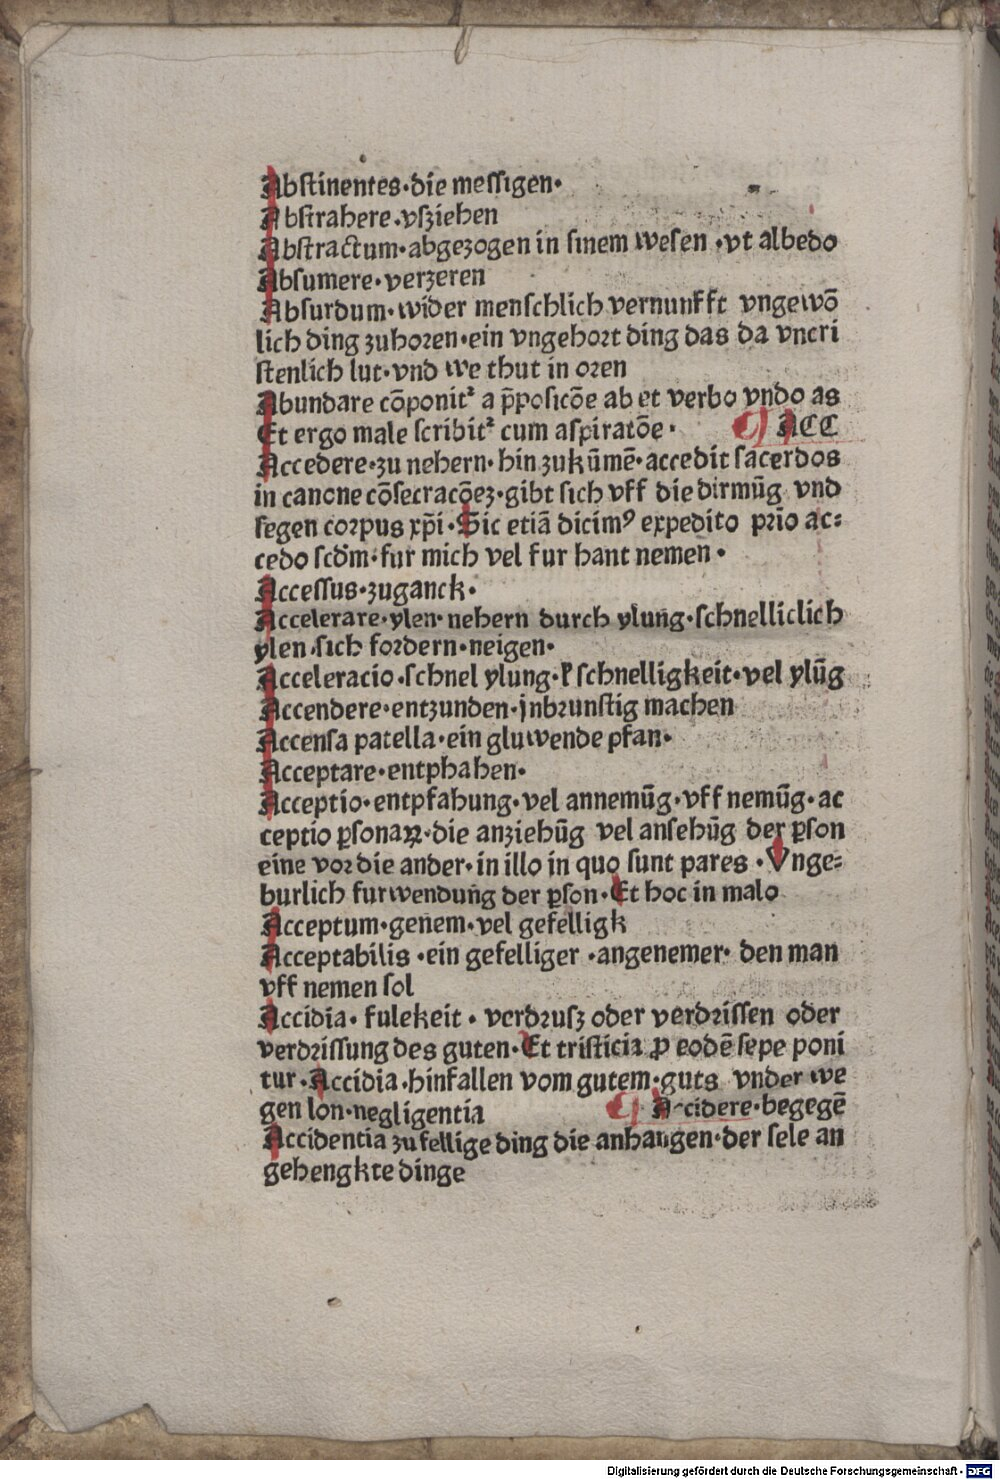 Abstinentes·die messigen·
Abstrahere·vsziehen
Abstractum·abgezogen in sinem wesen·vt albedo
Absumere·verzeren
Absurdum·wider menschlich vernunfft vngewō
lich ding zuhoren·ein vngehort ding das da vncri
stenlich lut·vnd we thut in oren
Abundare cōponitꝰ a p̄posicōe ab et verbo vndo as
Et ergo male scribitꝰ cum aspiratōe· ¶ ACC
Accedere·zu nehern·hin zukūmē·accedit sacerdos
in canone cōsecracōez·gibt sich vff die dirmūg vnd
segen corpus xp̄i·Sic etiā dicimꝰ expedito prīo ac:
cedo scd̄m·fur mich vel fur hant nemen·
Accessus·zuganck·
Accelerare·ylen·nehern durch ylung·schnelliclich
ylen·sich fordern·neigen·
Acceleracio·schnel ylung·schnelligkeit·vel ylūg
Accendere·entzunden·jnbrunstig machen
Accensa patella·ein gluwende pfan·
Acceptare·entphahen·
Acceptio·entpfahung·vel annemūg·vff nemūg·ac
ceptio ꝑsonaꝝ·die anziehūg vel ansehūg der ꝑson
eine vor die ander·in illo in quo sunt pares·Vnge:
burlich furwendung der ꝑson·Et hoc in malo
Acceptum·genem·vel gefelligk
Acceptabilis·ein gefelliger·angenemer·den man
vff nemen sol
Accidia·fulekeit·verdrusz oder verdrissen oder
verdrissung des guten·Et tristicia ꝓ eodē sepe poni
tur·Accidia·hinfallen vom gutem·guts vnder we
gen lon·negligentia ¶ Accidere·begegē
Accidentia zufellige ding die anhangen·der sele an
gehengkte dinge
Digitalisierung gefördert durch die Deutsche Forschungsgemeinschaft - DFG